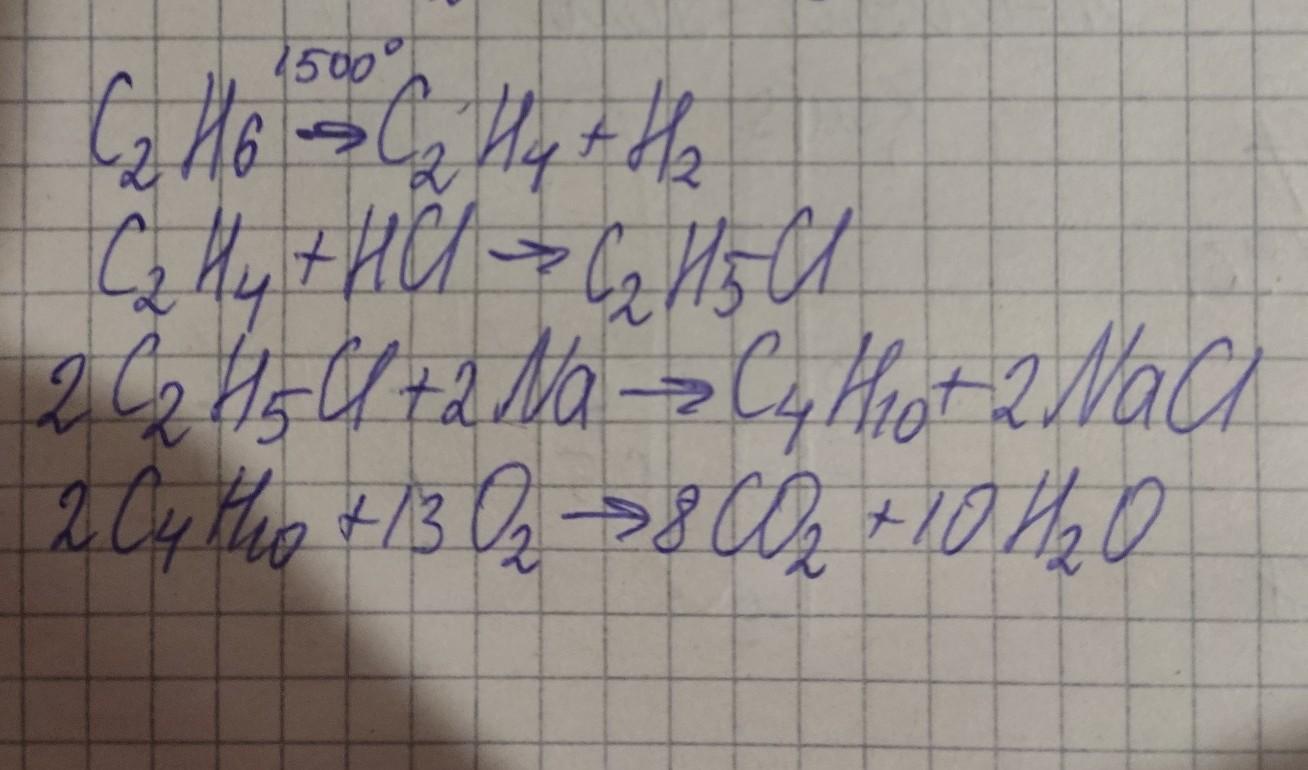 C₂H6 →1500° C₂H₄ + H₂
C₂H₄ + HCl → C₂H₅Cl
2C₂H₅Cl + 2Na → C₄H₁₀ + 2NaCl
2C₄H₁₀ + 13O₂ → 8CO₂ + 10H₂O